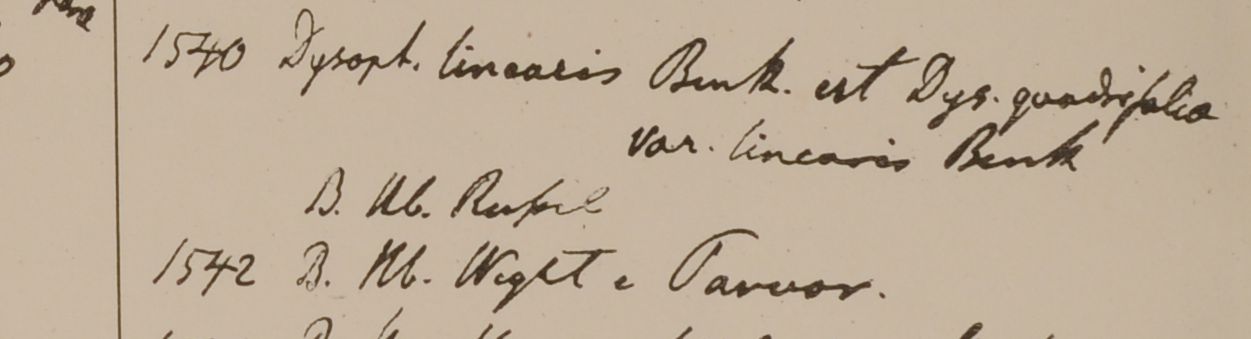 1540 Dysopt. linearis Benth. est Dys. quadrifolia
var. linearis Benth
B. Hb. Russel
1542 B. Hb. Wight e Tarvor.